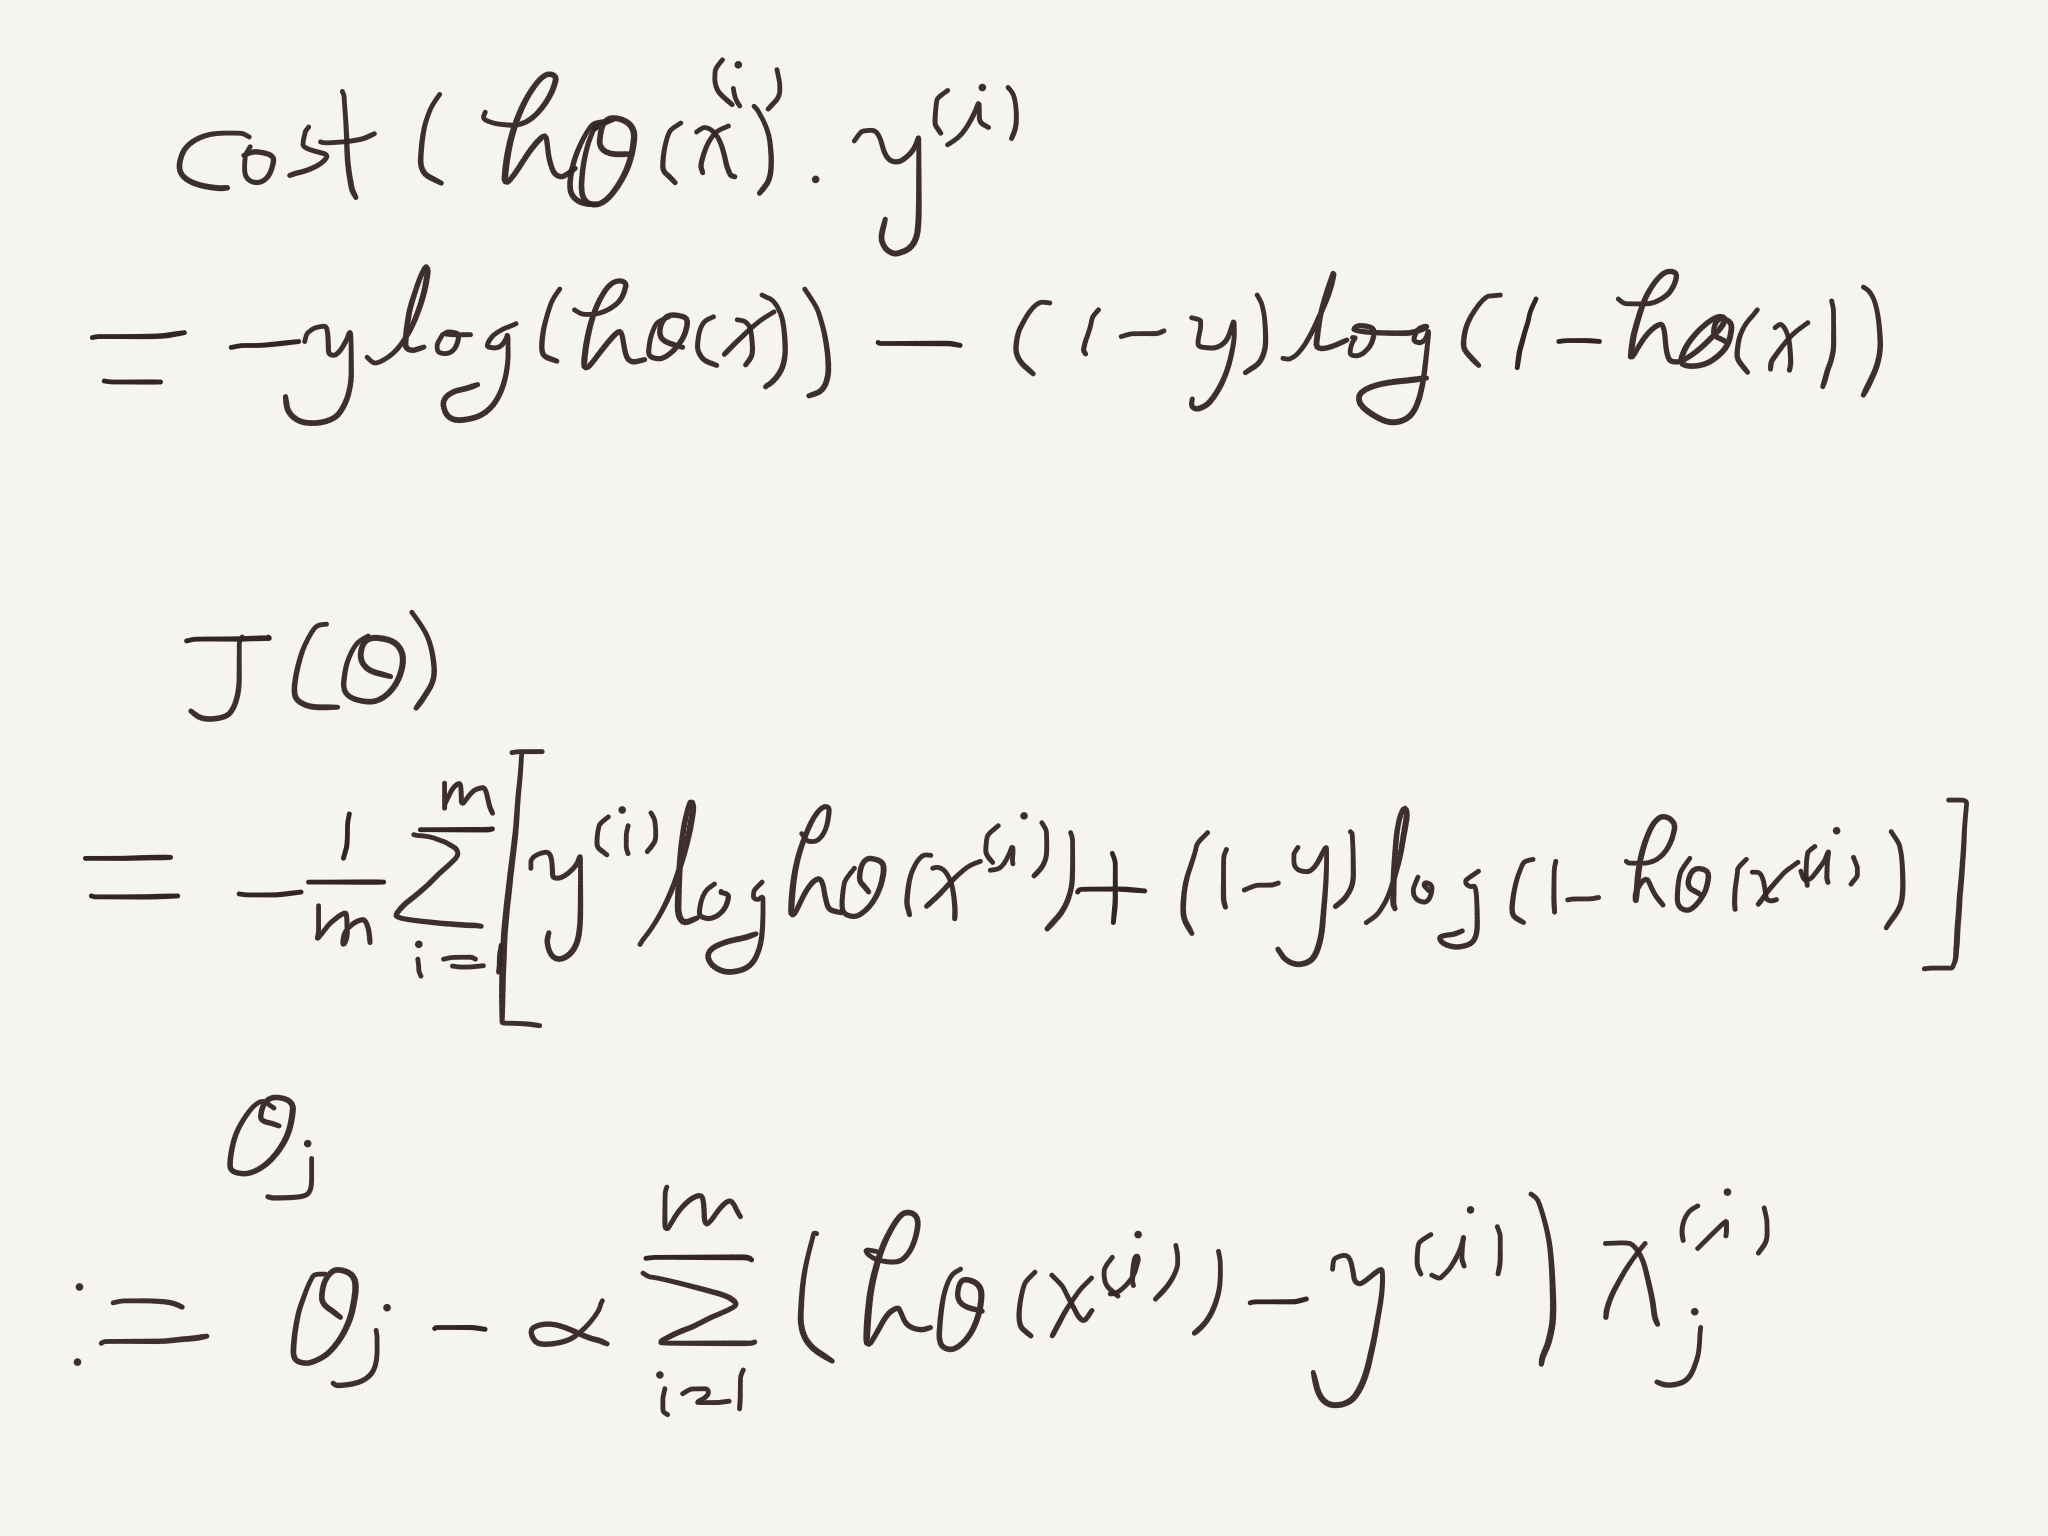 cost(hθ(x^(i)). y^(i)
= -y log(hθ(x)) - (1-y) log(1-hθ(x))
J(θ)
= -1/m Σ_{i=1}^{m} [y^(i) log hθ(x^(i)) + (1-y) log(1-hθ(x^(i))]
θj
:= θj - α Σ_{i=1}^{m} (hθ(x^(i)) - y^(i)) xj^(i)